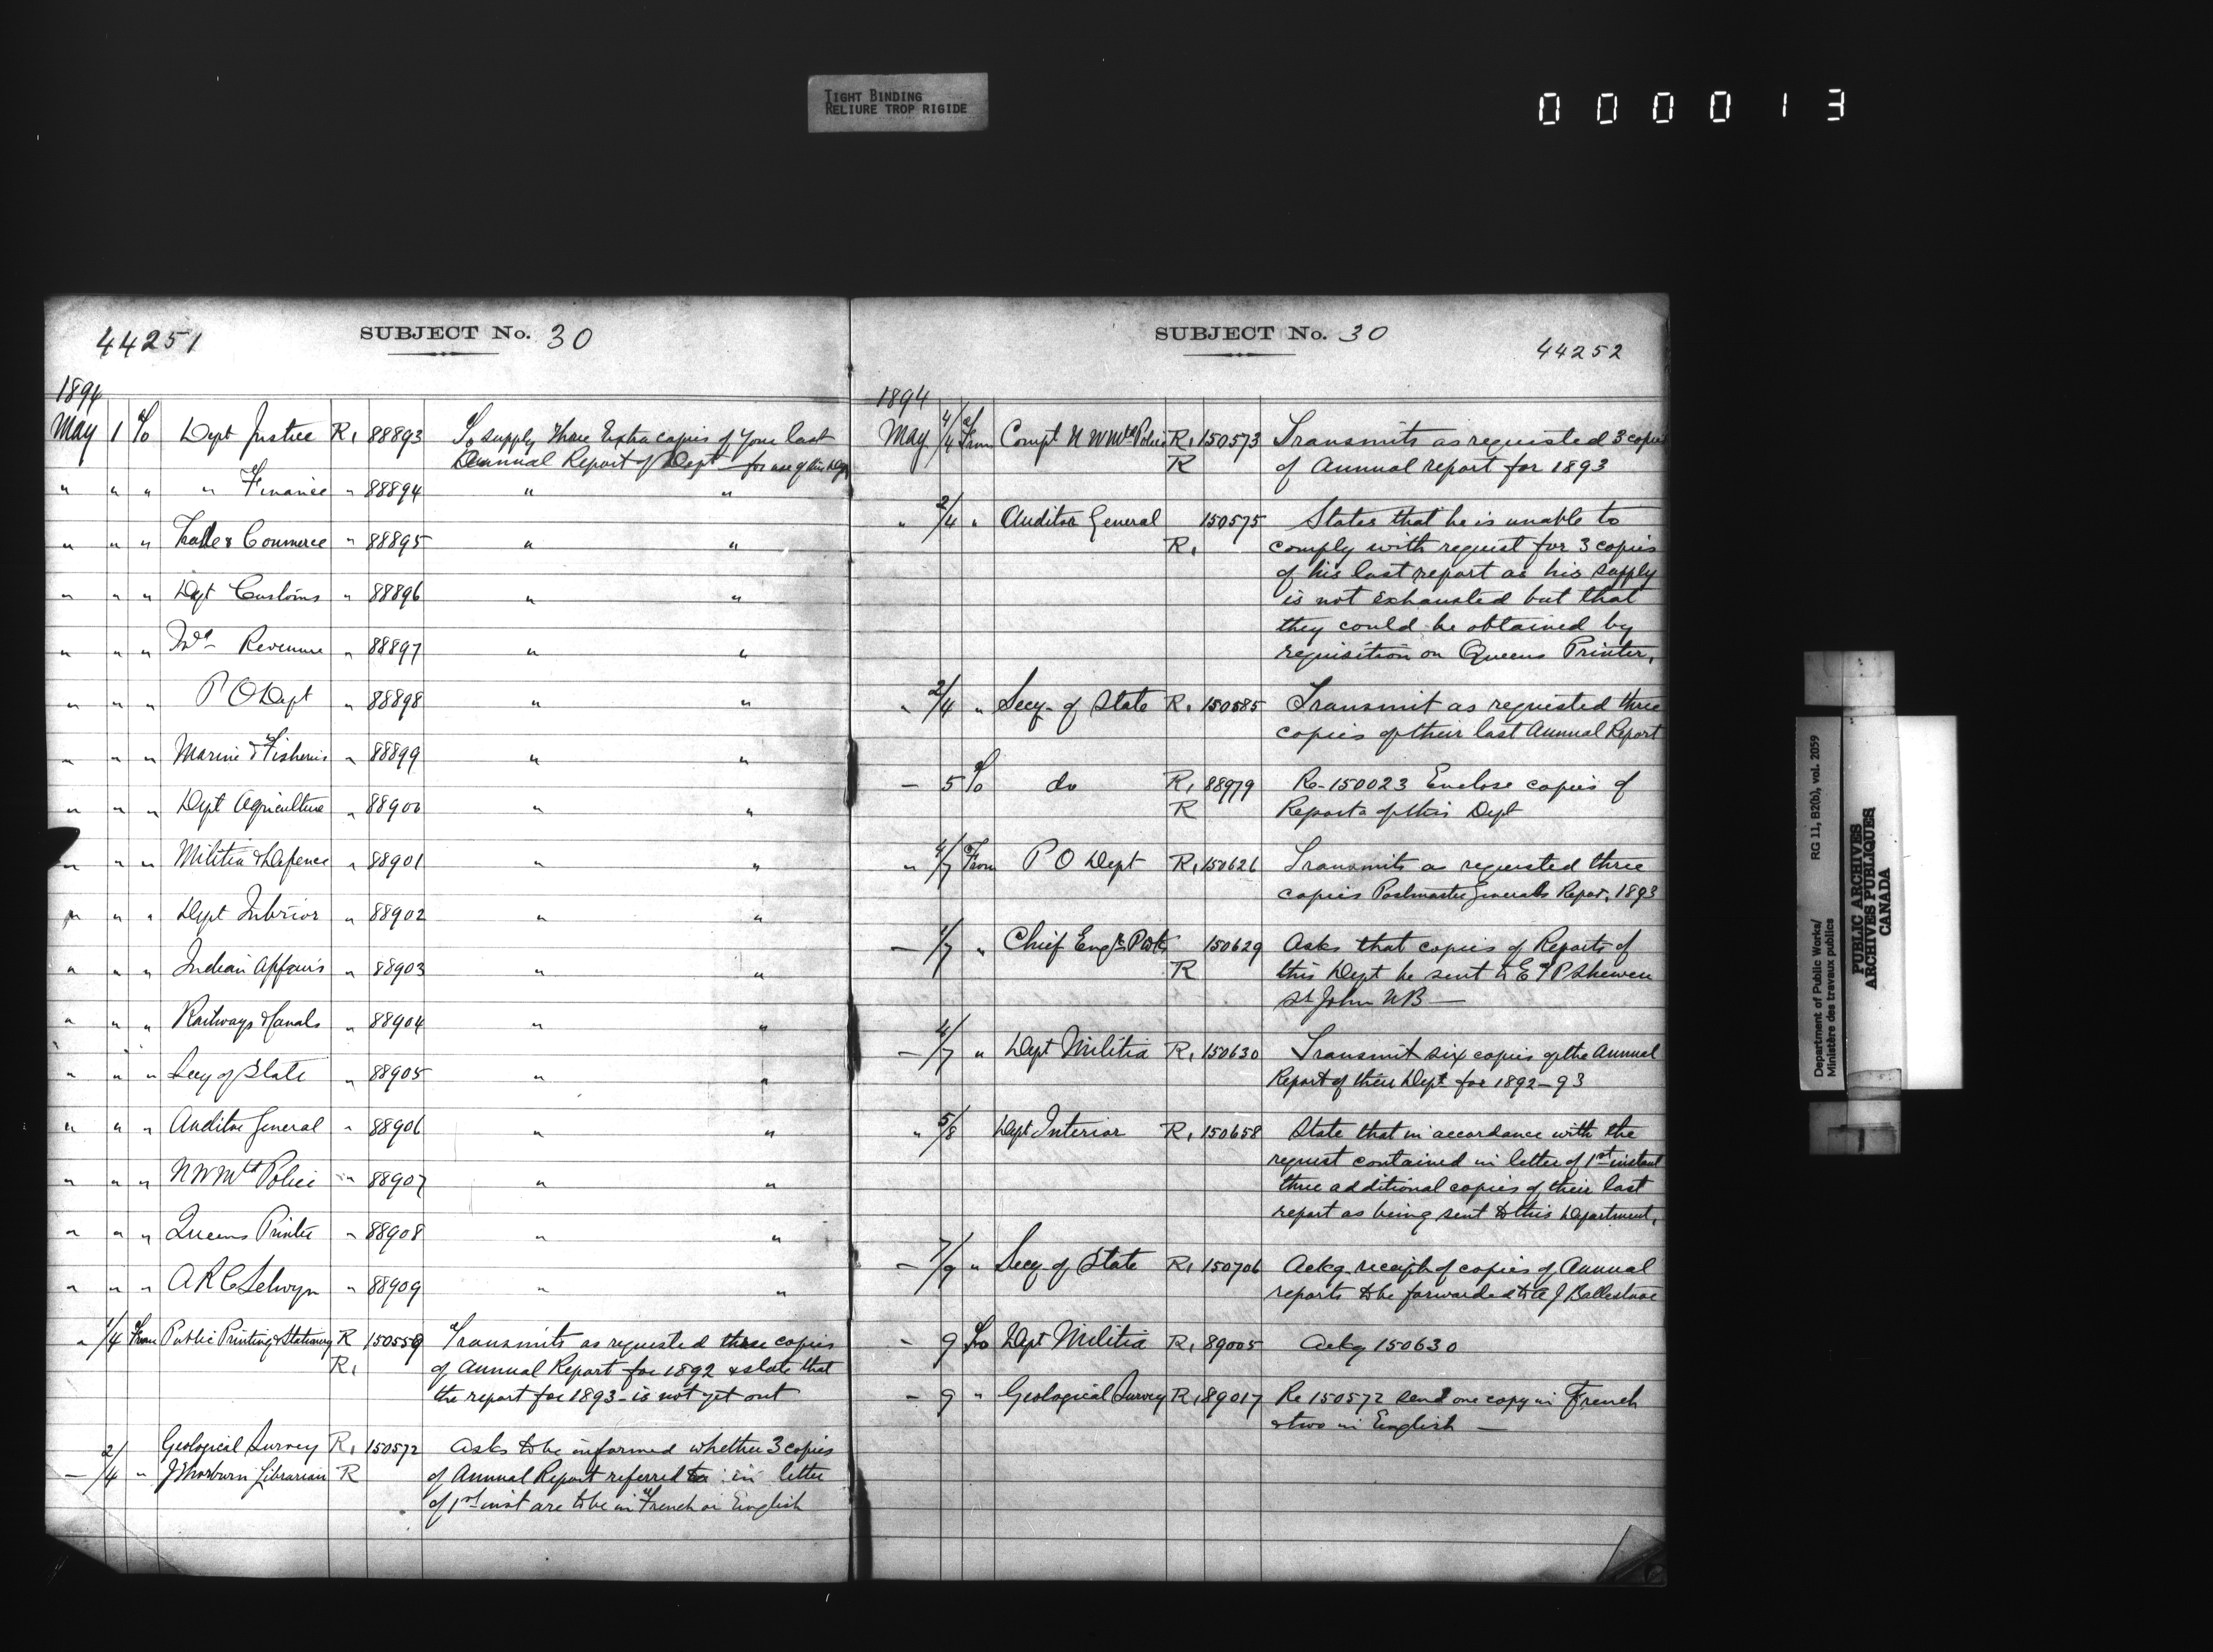 TIGHT BINDING
RELIURE TROP RIGIDE
000013
44251
SUBJECT No. 30
1894
May 1 To Dept Justice R, 88893 To supply three Extra copies of your last
Annual Report of Dept for use of this Dept
" " " " Finance " 88894 " "
" " " Trade & Commerce " 88895 " "
" " " Dept Customs " 88896 " "
" " " Ind Revenue " 88897 " "
" " " P O Dept " 88898 " "
" " " Marine & Fisheries " 88899 " "
" " " Dept Agriculture " 88900 " "
" " " Militia & Defence " 88901 " "
" " " Dept Interior " 88902 " "
" " " Indian Affairs " 88903 " "
" " " Railways & Canals " 88904 " "
" " " Secy of State " 88905 " "
" " " Auditor General " 88906 " "
" " " N W Mtd Police " 88907 " "
" " " Queens Printer " 88908 " "
" " " A R C Selwyn " 88909 " "
" 1/4 From Public Printing & Stationery R 150559 Transmits as requested three copies
R, of Annual Report for 1892 & state that
the report for 1893 - is not yet out
Geological Survey R, 150572 Asks to be informed whether 3 copies
— 2/4 " J Thorburn Librarian R of Annual Report referred to in letter
of 1st inst are to be in French or English
SUBJECT No. 30
44252
1894
May 4/4 From Compt N W Mtd Police R, 150573 Transmits as requested 3 copies
R of Annual report for 1893
" 2/4 " Auditor General 150575 States that he is unable to
R, comply with request for 3 copies
of his last report as his supply
is not exhausted but that
they could be obtained by
requisition on Queens Printer.
" 2/4 " Secy of State R, 150585 Transmit as requested three
copies of their last Annual Report
— 5 To do R, 88979 Re-150023 Enclose copies of
R Reports of this Dept
" 4/7 From P O Dept R, 150626 Transmits as requested three
copies Postmaster Generals Repor. 1893
— 1/7 " Chief Engr P Wks 150629 Asks that copies of Reports of
R this Dept be sent to E T P Shewen
St John NB —
— 4/7 " Dept Militia R, 150630 Transmit six copies of the Annual
Report of their Dept for 1892-93
" 5/8 Dept Interior R, 150658 State that in accordance with the
request contained in letter of 1st instant
three additional copies of their last
report as being sent to this Department.
— 7/9 " Secy of State R, 150706 Ackg receipt of copies of Annual
reports to be forwarded to A J
— 9 To Dept Militia R, 89005 Ackg 150630
— 9 " Geological Survey R, 89017 Re 150572 send one copy in French
& two in English —
Department of Public Works/ RG 11, B2(b), vol. 2059
Ministère des travaux publics
PUBLIC ARCHIVES
ARCHIVES PUBLIQUES
CANADA